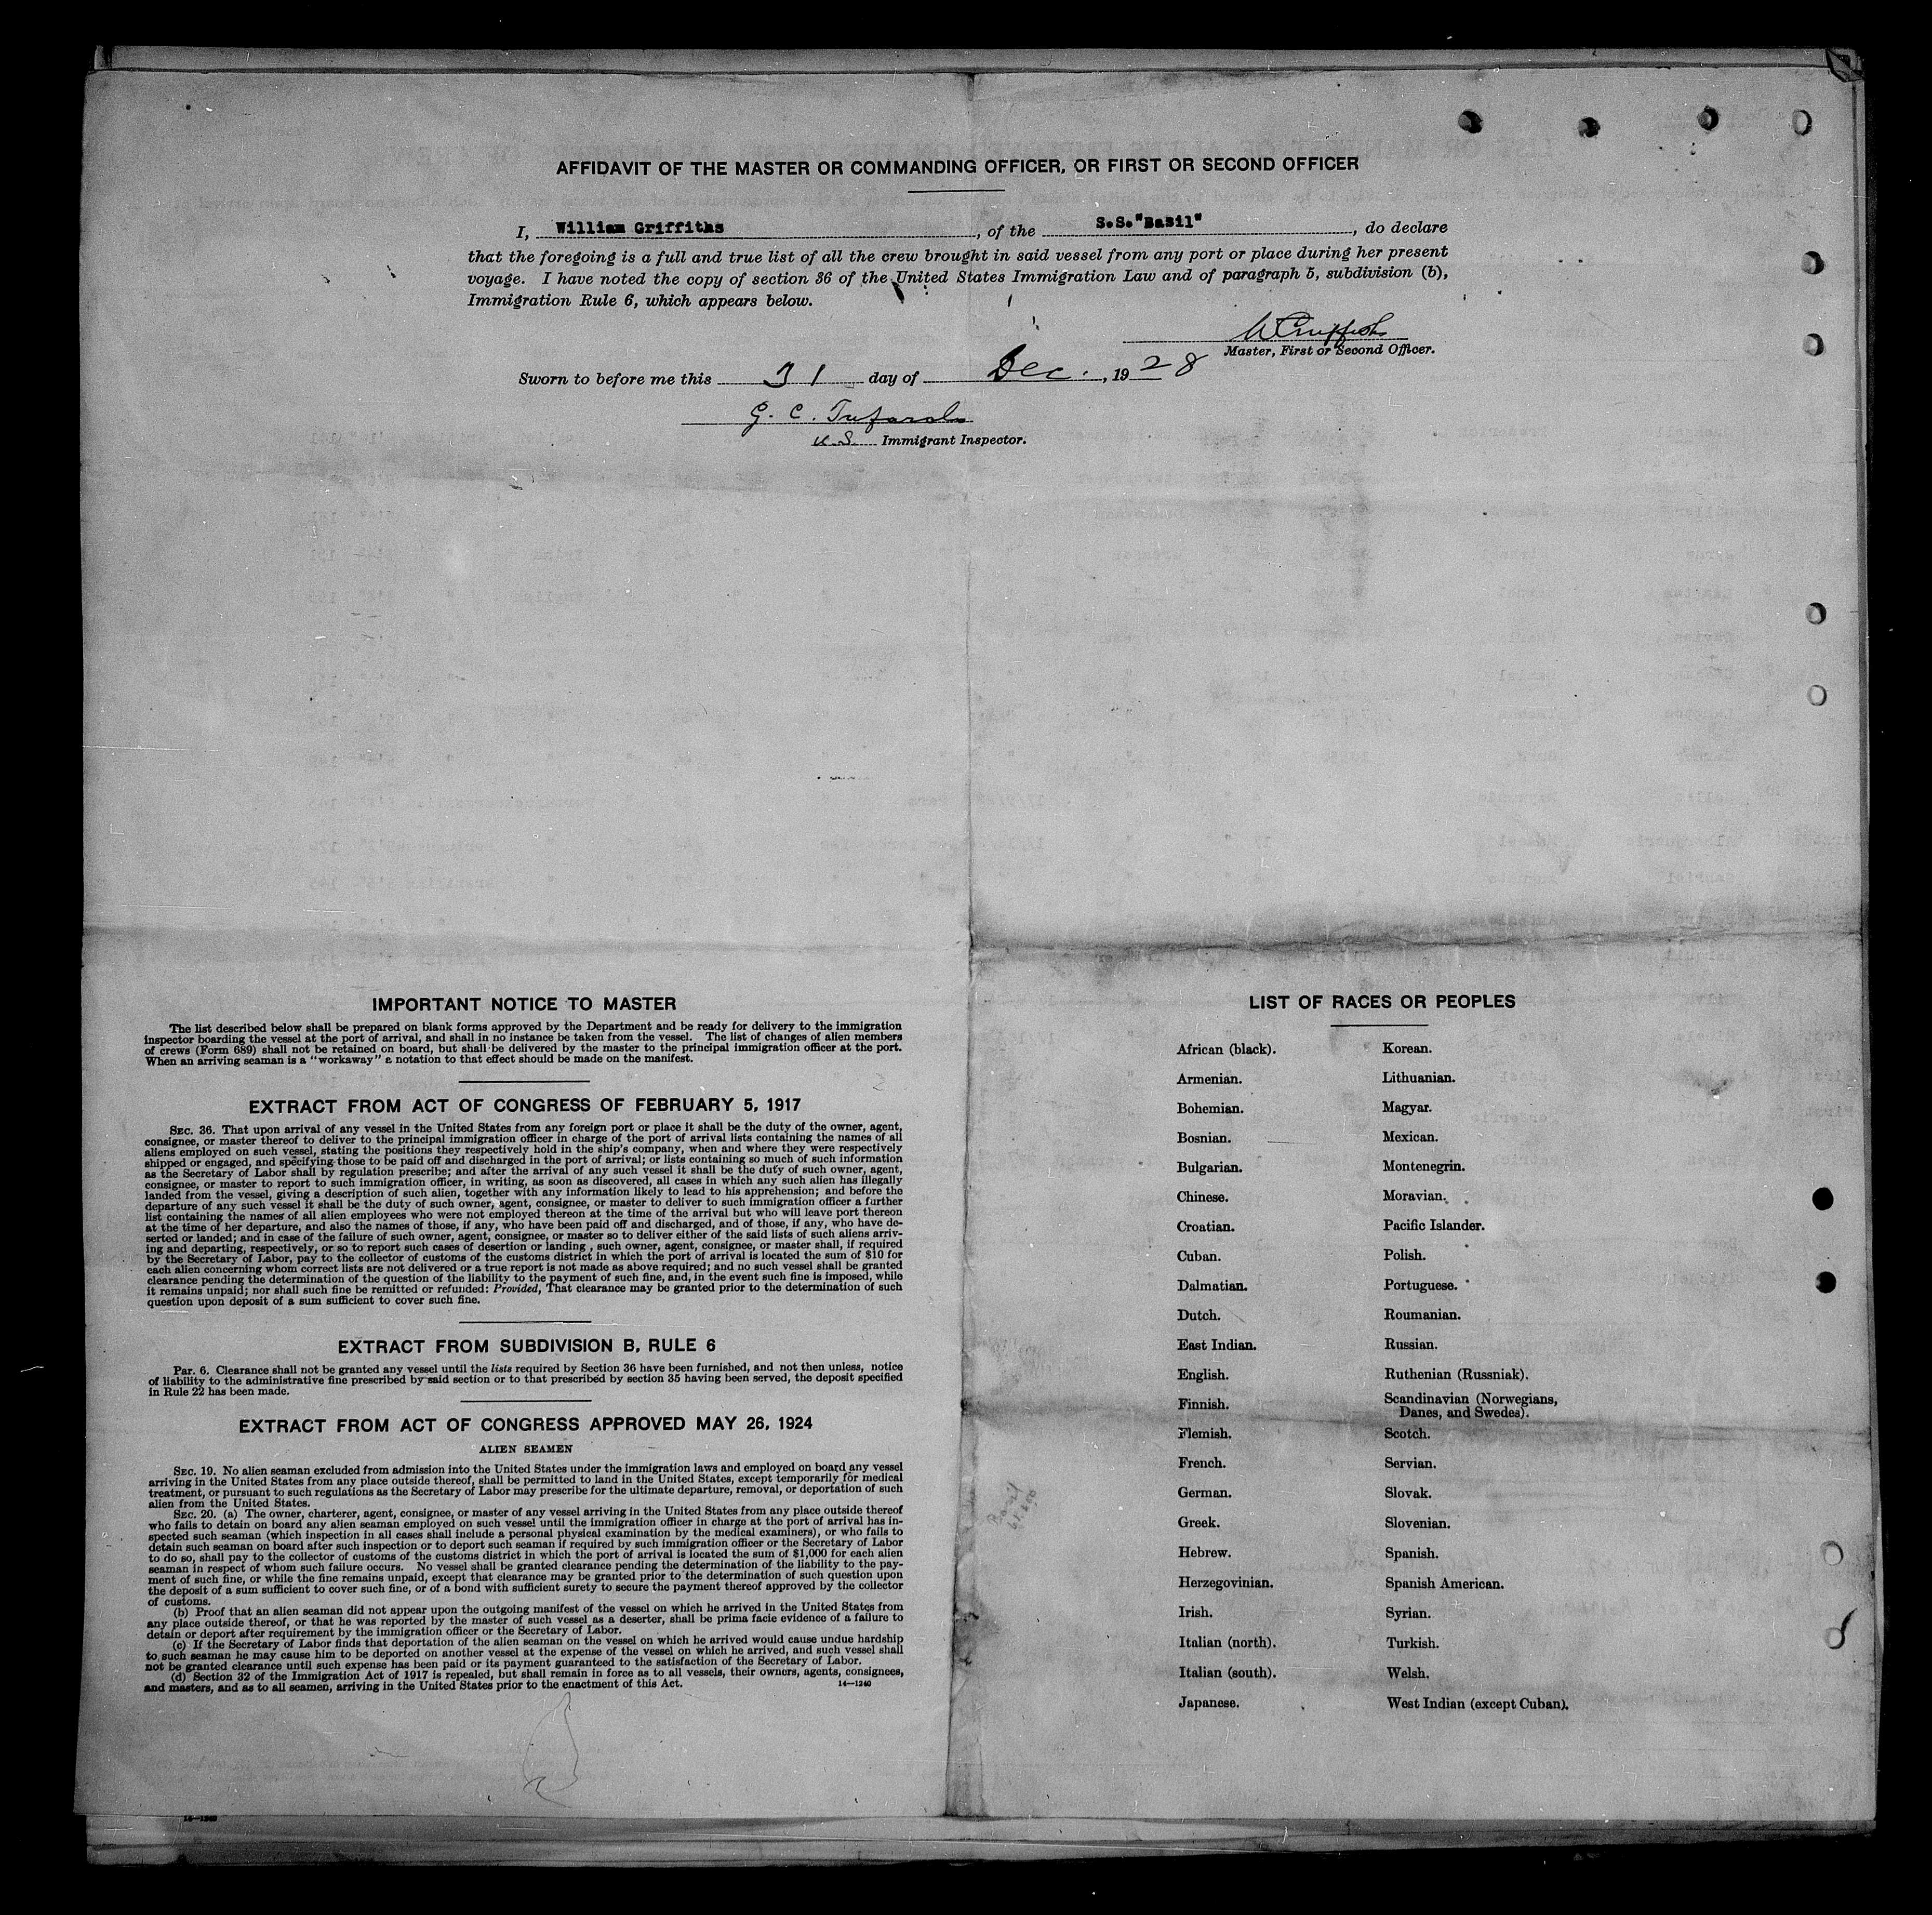 AFFIDAVIT OF THE MASTER OR COMMANDING OFFICER, OR FIRST OR SECOND OFFICER
I, William Griffiths, of the S.S."Basil", do declare
that the foregoing is a full and true list of all the crew brought in said vessel from any port or place during her present
voyage. I have noted the copy of section 36 of the United States Immigration Law and of paragraph 5, subdivision (b),
Immigration Rule 6, which appears below.
W Griffiths
Master, First or Second Officer.
Sworn to before me this 31 day of Dec., 1928
G. C.
U.S. Immigrant Inspector.
IMPORTANT NOTICE TO MASTER
The list described below shall be prepared on blank forms approved by the Department and be ready for delivery to the immigration
inspector boarding the vessel at the port of arrival, and shall in no instance be taken from the vessel. The list of changes of alien members
of crews (Form 689) shall not be retained on board, but shall be delivered by the master to the principal immigration officer at the port.
When an arriving seaman is a "workaway" a notation to that effect should be made on the manifest.
EXTRACT FROM ACT OF CONGRESS OF FEBRUARY 5, 1917
SEC. 36. That upon arrival of any vessel in the United States from any foreign port or place it shall be the duty of the owner, agent,
consignee, or master thereof to deliver to the principal immigration officer in charge of the port of arrival lists containing the names of all
aliens employed on such vessel, stating the positions they respectively hold in the ship's company, when and where they were respectively
shipped or engaged, and specifying those to be paid off and discharged in the port of arrival; or lists containing so much of such information
as the Secretary of Labor shall by regulation prescribe; and after the arrival of any such vessel it shall be the duty of such owner, agent,
consignee, or master to report to such immigration officer, in writing, as soon as discovered, all cases in which any such alien has illegally
landed from the vessel, giving a description of such alien, together with any information likely to lead to his apprehension; and before the
departure of any such vessel it shall be the duty of such owner, agent, consignee, or master to deliver to such immigration officer a further
list containing the names of all alien employees who were not employed thereon at the time of the arrival but who will leave port thereon
at the time of her departure, and also the names of those, if any, who have been paid off and discharged, and of those, if any, who have de-
serted or landed; and in case of the failure of such owner, agent, consignee, or master so to deliver either of the said lists of such aliens arriv-
ing and departing, respectively, or so to report such cases of desertion or landing, such owner, agent, consignee, or master shall, if required
by the Secretary of Labor, pay to the collector of customs of the customs district in which the port of arrival is located the sum of $10 for
each alien concerning whom correct lists are not delivered or a true report is not made as above required; and no such vessel shall be granted
clearance pending the determination of the question of the liability to the payment of such fine, and, in the event such fine is imposed, while
it remains unpaid; nor shall such fine be remitted or refunded: Provided, That clearance may be granted prior to the determination of such
question upon deposit of a sum sufficient to cover such fine.
EXTRACT FROM SUBDIVISION B, RULE 6
Par. 6. Clearance shall not be granted any vessel until the lists required by Section 36 have been furnished, and not then unless, notice
of liability to the administrative fine prescribed by said section or to that prescribed by section 35 having been served, the deposit specified
in Rule 22 has been made.
EXTRACT FROM ACT OF CONGRESS APPROVED MAY 26, 1924
ALIEN SEAMEN
SEC. 19. No alien seaman excluded from admission into the United States under the immigration laws and employed on board any vessel
arriving in the United States from any place outside thereof, shall be permitted to land in the United States, except temporarily for medical
treatment, or pursuant to such regulations as the Secretary of Labor may prescribe for the ultimate departure, removal, or deportation of such
alien from the United States.
SEC. 20. (a) The owner, charterer, agent, consignee, or master of any vessel arriving in the United States from any place outside thereof
who fails to detain on board any alien seaman employed on such vessel until the immigration officer in charge at the port of arrival has in-
spected such seaman (which inspection in all cases shall include a personal physical examination by the medical examiners), or who fails to
detain such seaman on board after such inspection or to deport such seaman if required by such immigration officer or the Secretary of Labor
to do so, shall pay to the collector of customs of the customs district in which the port of arrival is located the sum of $1,000 for each alien
seaman in respect of whom such failure occurs. No vessel shall be granted clearance pending the determination of the liability to the pay-
ment of such fine, or while the fine remains unpaid, except that clearance may be granted prior to the determination of such question upon
the deposit of a sum sufficient to cover such fine, or of a bond with sufficient surety to secure the payment thereof approved by the collector
of customs.
(b) Proof that an alien seaman did not appear upon the outgoing manifest of the vessel on which he arrived in the United States from
any place outside thereof, or that he was reported by the master of such vessel as a deserter, shall be prima facie evidence of a failure to
detain or deport after requirement by the immigration officer or the Secretary of Labor.
(c) If the Secretary of Labor finds that deportation of the alien seaman on the vessel on which he arrived would cause undue hardship
to such seaman he may cause him to be deported on another vessel at the expense of the vessel on which he arrived, and such vessel shall
not be granted clearance until such expense has been paid or its payment guaranteed to the satisfaction of the Secretary of Labor.
(d) Section 32 of the Immigration Act of 1917 is repealed, but shall remain in force as to all vessels, their owners, agents, consignees,
and masters, and as to all seamen, arriving in the United States prior to the enactment of this Act. 14—1240
LIST OF RACES OR PEOPLES
African (black). Korean.
Armenian. Lithuanian.
Bohemian. Magyar.
Bosnian. Mexican.
Bulgarian. Montenegrin.
Chinese. Moravian.
Croatian. Pacific Islander.
Cuban. Polish.
Dalmatian. Portuguese.
Dutch. Roumanian.
East Indian. Russian.
English. Ruthenian (Russniak).
Finnish. Scandinavian (Norwegians,
Danes, and Swedes).
Flemish. Scotch.
French. Servian.
German. Slovak.
Greek. Slovenian.
Hebrew. Spanish.
Herzegovinian. Spanish American.
Irish. Syrian.
Italian (north). Turkish.
Italian (south). Welsh.
Japanese. West Indian (except Cuban).